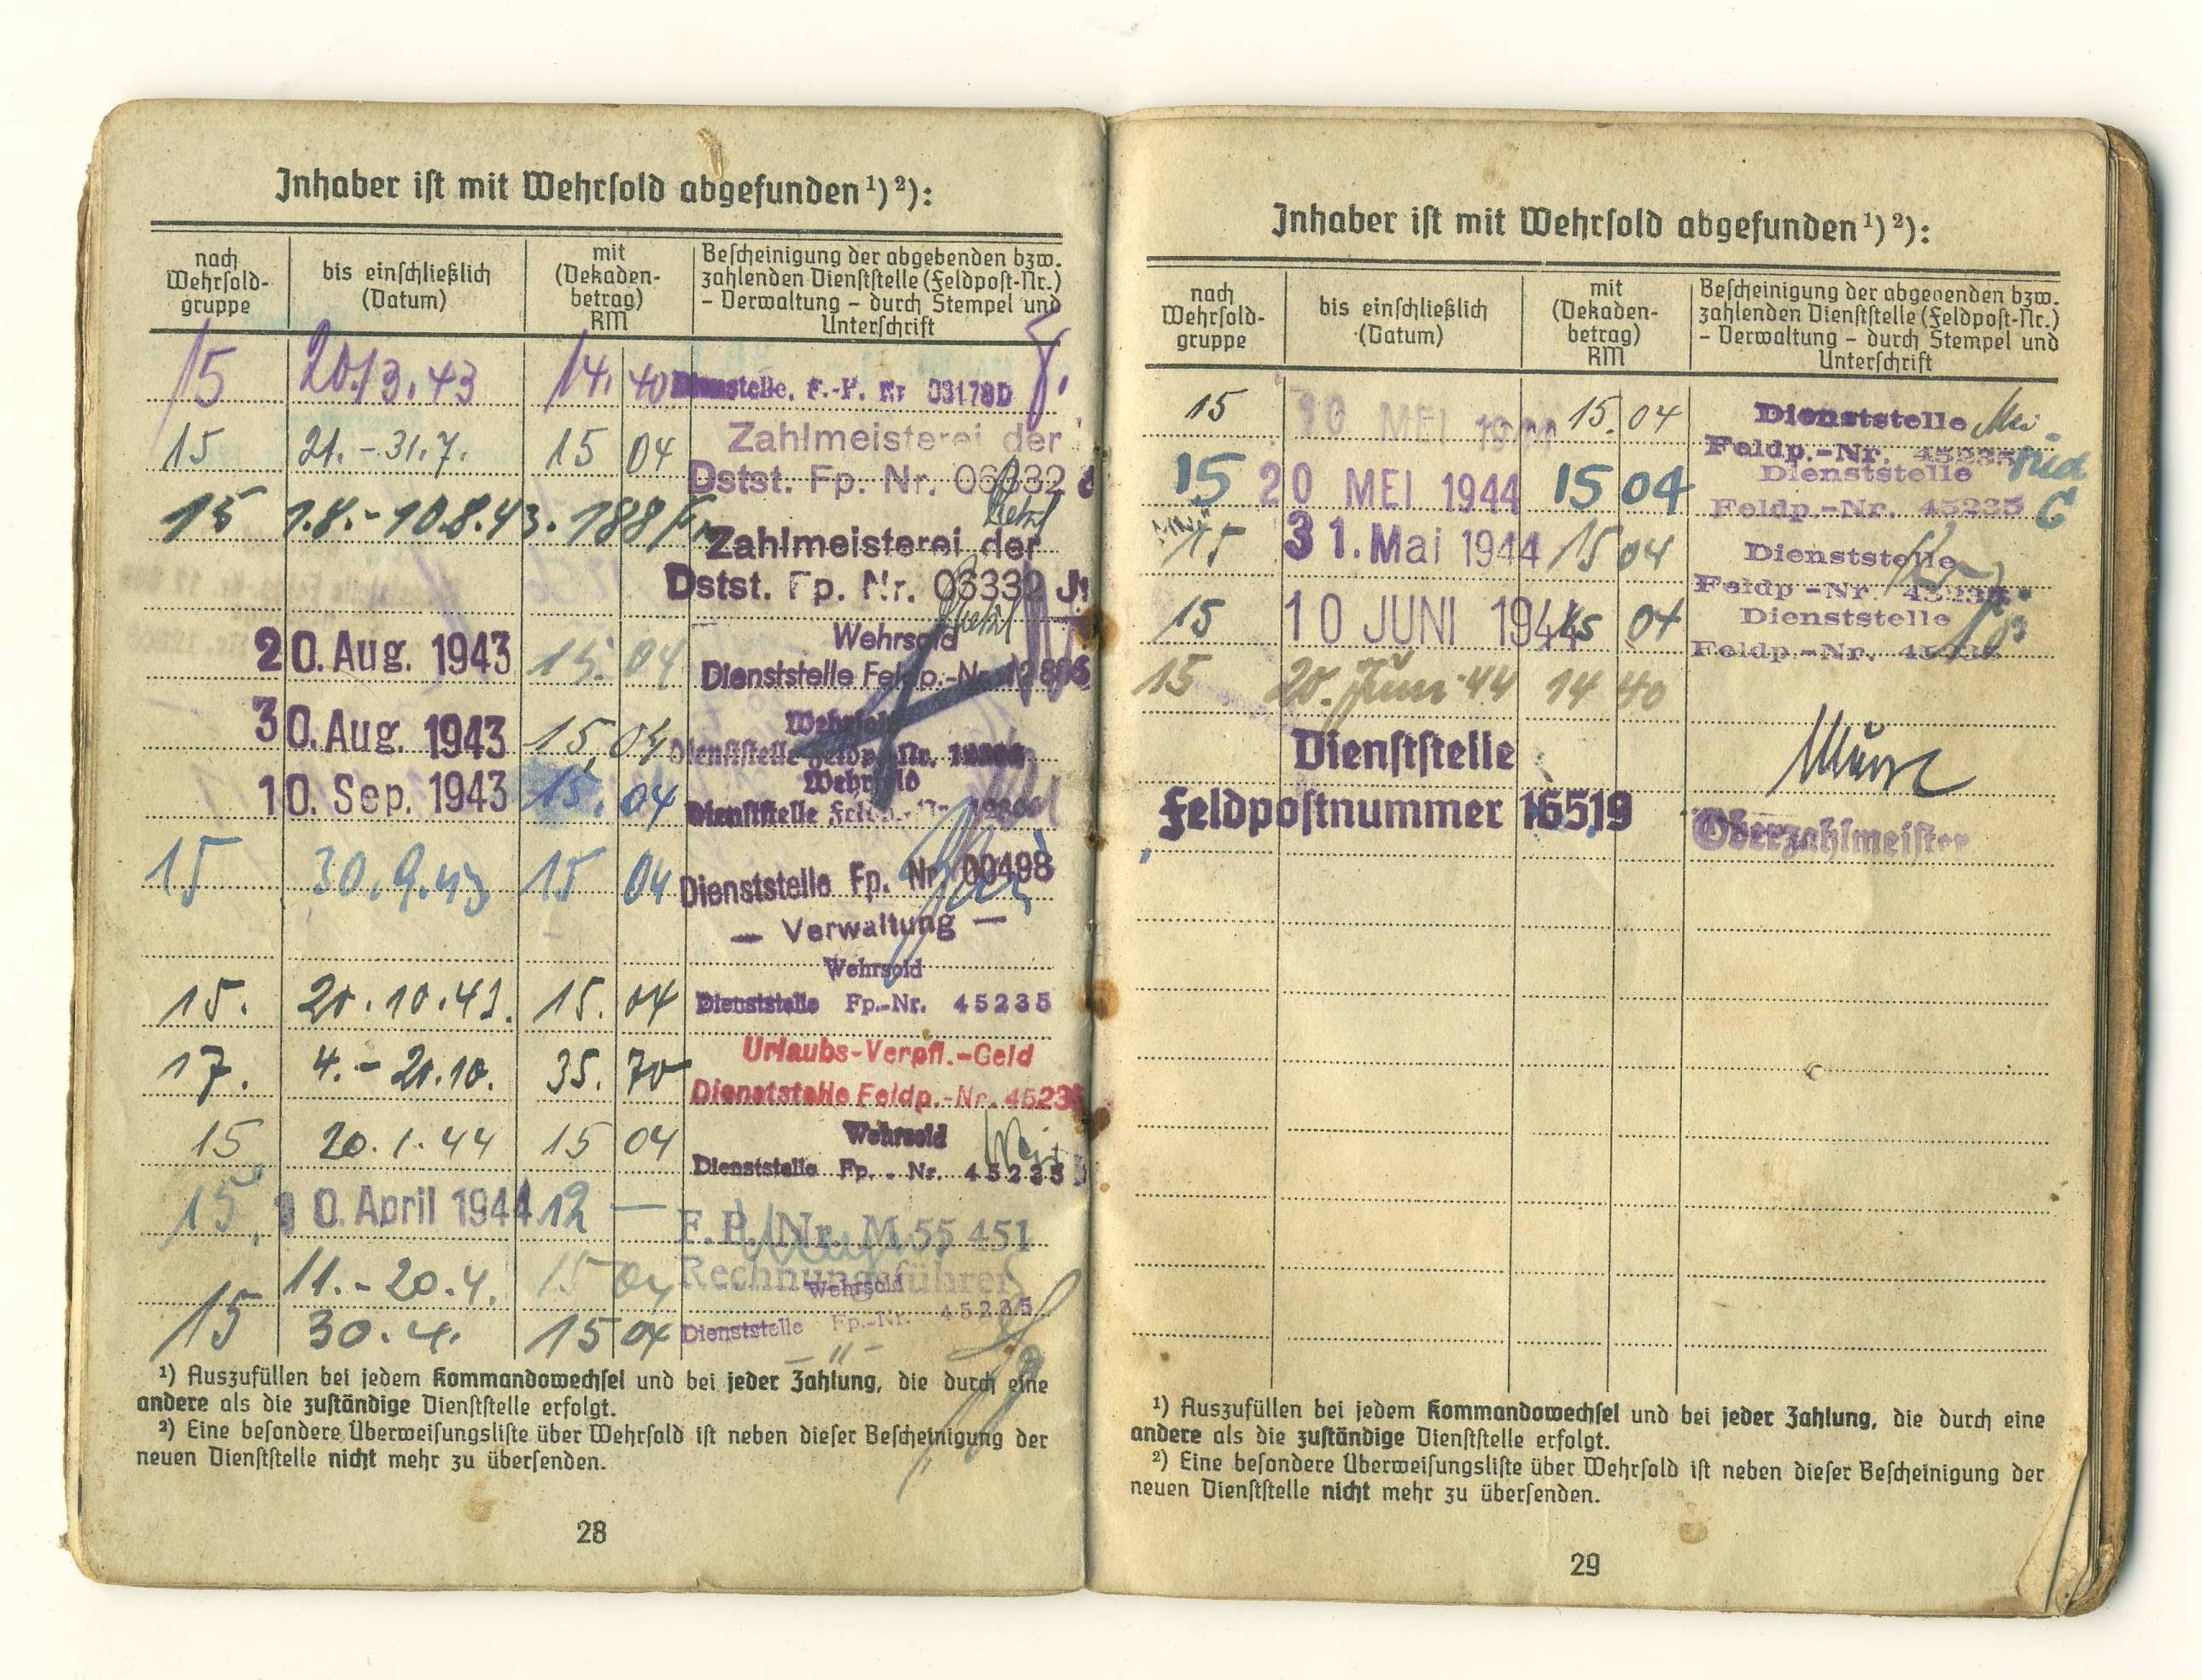 Inhaber ist mit Wehrsold abgefunden¹)²):
nach
Wehrsold-
gruppe
bis einschließlich
(Datum)
mit
(Dekaden-
betrag)
RM
Bescheinigung der abgebenden bzw.
zahlenden Dienststelle (Feldpost-Nr.)
– Verwaltung – durch Stempel und
Unterschrift
15 20.3.43 14. 40 Dienststelle, F.-P. Nr 03178D
15 21.-31.7. 15 04 Zahlmeisterei der
Dstst. Fp. Nr. 06332
15 1.8.-10.8.43. 188 Fr. Zahlmeisterei der
Dstst. Fp. Nr. 06332
20. Aug. 1943 15. 04 Wehrsold
Dienststelle Feldp.-Nr. 12806
30. Aug. 1943 15, 04 Wehrsold
Dienststelle Feldp.-Nr. 12806
10. Sep. 1943 15. 04 Wehrsold
Dienststelle Feldp.-Nr. 12806
15 30.9.43 15 04 Dienststelle Fp. Nr. 00498
— Verwaltung —
Wehrsold
15. 20.10.43. 15. 04 Dienststelle Fp.-Nr. 45235
Urlaubs-Verpfl.-Geld
17. 4.-20.10. 35. 70 Dienststelle Feldp.-Nr. 45235
Wehrsold
15 20.1.44 15 04 Dienststelle Fp.-Nr. 45235
15. 10. April 1944 12 — F. P. Nr. M 55 451
Rechnungsführer
11.-20.4. 15 04 Wehrsold
Dienststelle Fp.-Nr. 45235
15 30.4. 15 04 -"-
¹) Auszufüllen bei jedem Kommandowechsel und bei jeder Zahlung, die durch eine
andere als die zuständige Dienststelle erfolgt.
²) Eine besondere Überweisungsliste über Wehrsold ist neben dieser Bescheinigung der
neuen Dienststelle nicht mehr zu übersenden.
28
Inhaber ist mit Wehrsold abgefunden¹)²):
nach
Wehrsold-
gruppe
bis einschließlich
(Datum)
mit
(Dekaden-
betrag)
RM
Bescheinigung der abgebenden bzw.
zahlenden Dienststelle (Feldpost-Nr.)
– Verwaltung – durch Stempel und
Unterschrift
15 10 MEI 1944 15. 04 Dienststelle
Feldp.-Nr. 45235
15 20 MEI 1944 15 04 Dienststelle
Feldp.-Nr. 45235
15 31. Mai 1944 15 04 Dienststelle
Feldp.-Nr. 45235
15 10 JUNI 1944 15 04 Dienststelle
Feldp.-Nr. 45235
15 20. Juni 44 14 40
Dienststelle
Feldpostnummer 16519
Oberzahlmeister
¹) Auszufüllen bei jedem Kommandowechsel und bei jeder Zahlung, die durch eine
andere als die zuständige Dienststelle erfolgt.
²) Eine besondere Überweisungsliste über Wehrsold ist neben dieser Bescheinigung der
neuen Dienststelle nicht mehr zu übersenden.
29